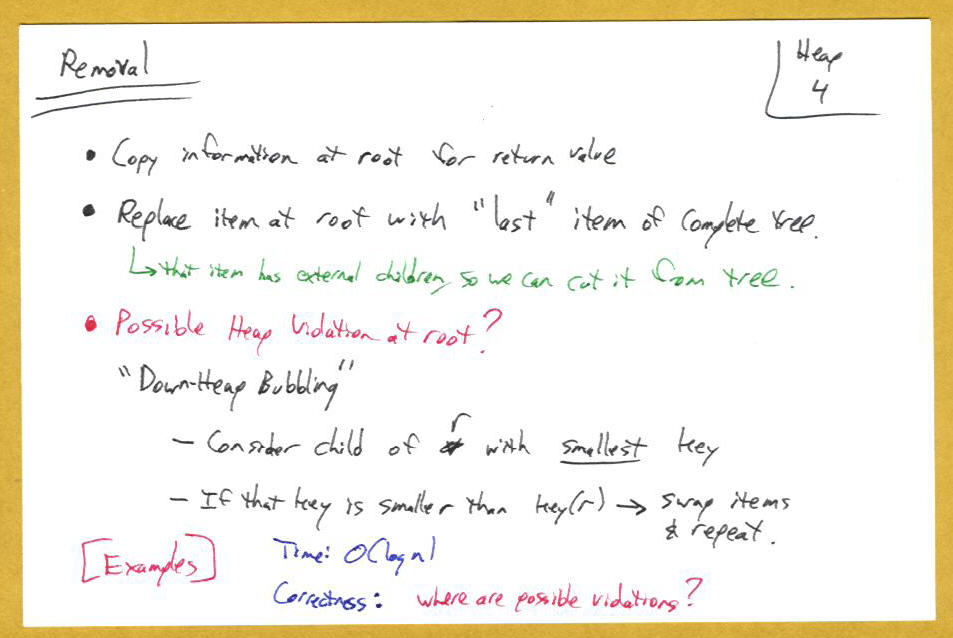 Removal
Heap
4
• Copy information at root for return value
• Replace item at root with "last" item of complete tree.
↳ that item has external children, so we can cut it from tree.
• Possible Heap Violation at root?
"Down-Heap Bubbling"
– Consider child of r with smallest key
– If that key is smaller than key(r) → swap items
& repeat.
[Examples]
Time: O(log n)
Correctness: where are possible violations?